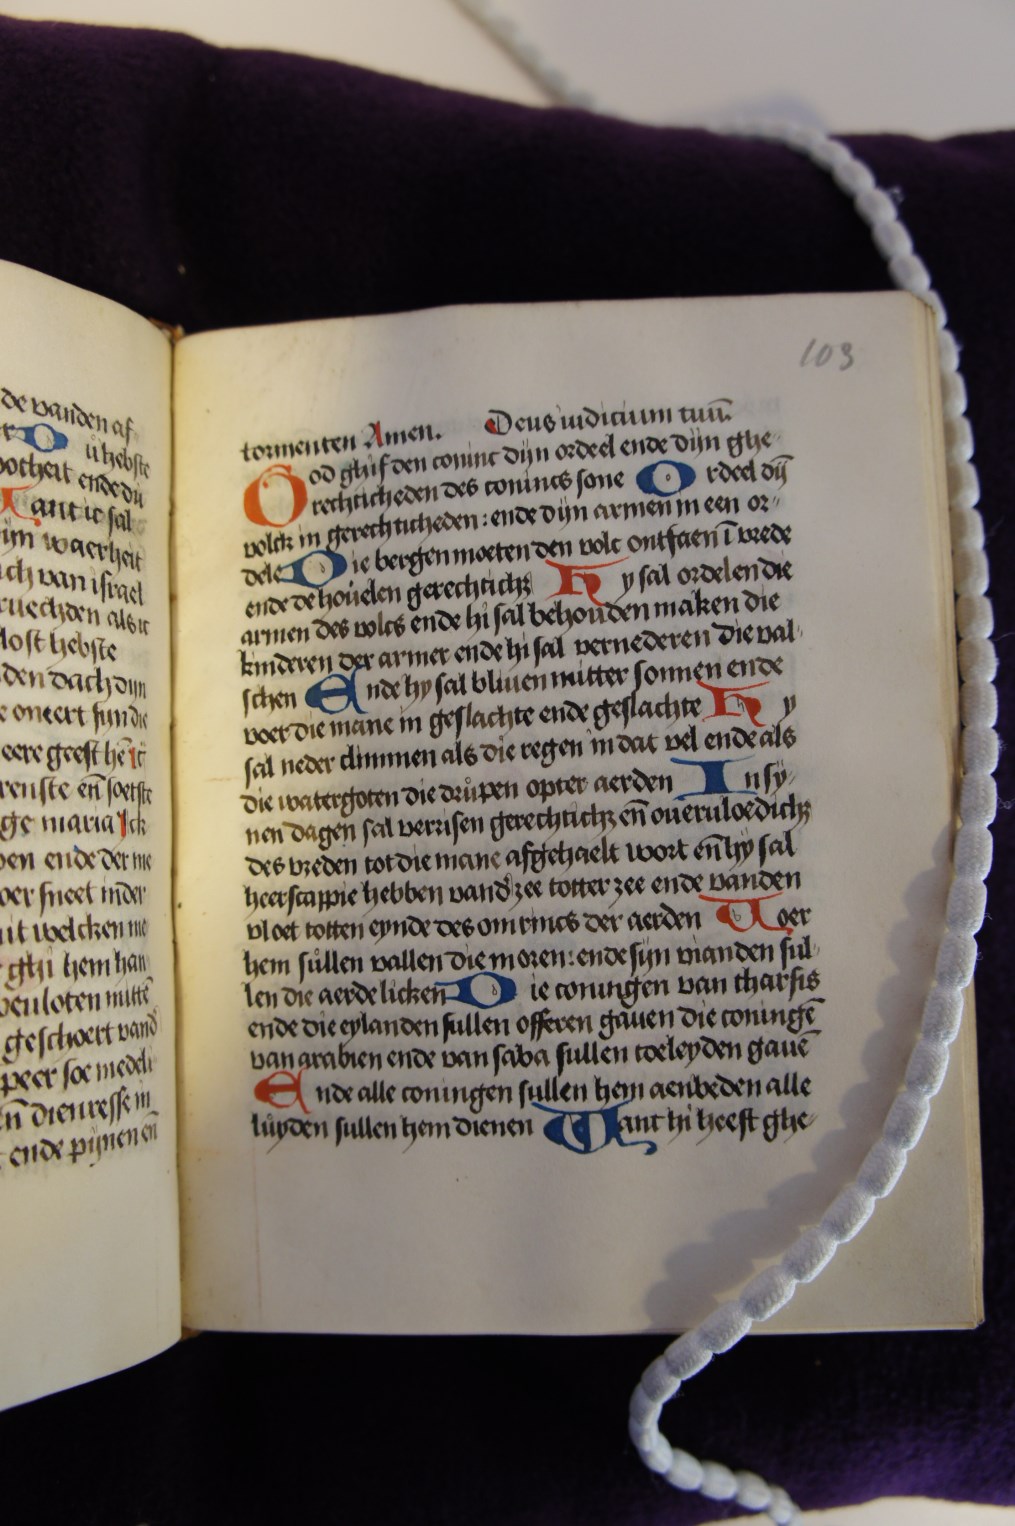 de vanden af
er Du hebste
ootheit ende du
Want ic sal
ijn waerheit
ich van israel
ruechden als ic
lost hebste
den dach dijn
e onteert sun die
eere geest hē ic
renste eñ soetste
ge maria Ick
en ende der me
oer sneet inder
uit welcken me
ghi hem han
euloten mittē
geschoert vand
peer soe medeli
eñ dienresse m
ende pijnen eñ
103
tormenten Amen. Deus iudicium tuū.
God ghif den coninc dijn ordeel ende dijn ghe-
rechticheden des conincs sone Ordeel dȳ
volck in gerechticheden: ende dijn armen in een or-
dele Die bergen moeten den volc ontfaen ī vrede
ende de houelen gerechtichꝫ Hy sal ordelen die
armen des volcs ende hi sal behouden maken die
kinderen der armer ende hi sal vernederen die val-
schen Ende hy sal bliuen mitter sonnen ende
voer die mane in geslachte ende geslachte Hy
sal neder climmen als die regen in dat vel ende als
die watergoten die drůpen opter aerden In sy-
nen dagen sal verrisen gerechtichꝫ eñ oueruloedichꝫ
des vreden tot die mane afgehaelt wort eñ hy sal
heerscappie hebben vand zee totter zee ende vanden
vloet totten eynde des omrincs der aerden Voer
hem sůllen vallen die moren: ende sijn vianden sul-
len die aerde licken Die coningen van tharsis
ende die eylanden sullen offeren gauen die coningē
van arabien ende van saba sullen toeleyden gauē
Ende alle coningen sullen hem aenbeden alle
lůyden sullen hem dienen Want hi heeft ghe-